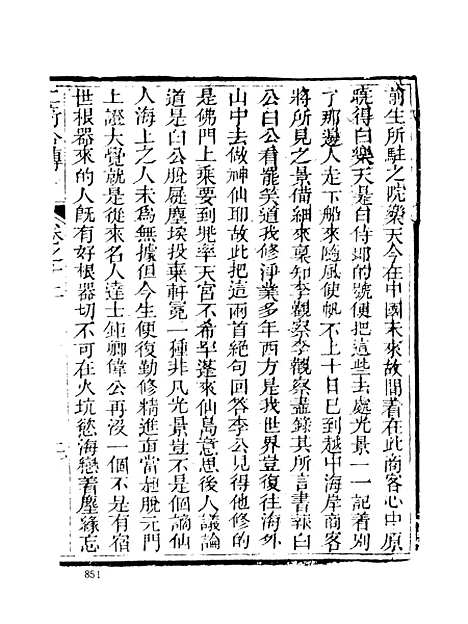 前生所駐之院樂天今在中國未來故閒着在此商客心中原
曉得白樂天是白侍郎的號便把這些去處光景一一記着別
了那邊人走下船來隨風使帆不上十日已到越中海岸商客
將所見之景備細來稟知李觀察李觀察盡錄其所言書報白
公白公看罷笑道我修淨業多年西方是我世界豈復往海外
山中去做神仙耶故此把這兩首絕句回答李公見得他修的
是佛門上乘要到兜率天宮不希罕蓬萊仙島意思後人議論
道是白公脫屣塵埃投棄軒冕一種非凡光景豈不是個謫仙
人海上之人未爲無據但今生便復勤修精進直當超脫元門
上證大覺就是從來名人達士鉅卿偉公再沒一個不是有宿
世根器來的人旣有好根器切不可在火坑慾海戀著塵緣忘
卷之十二
851